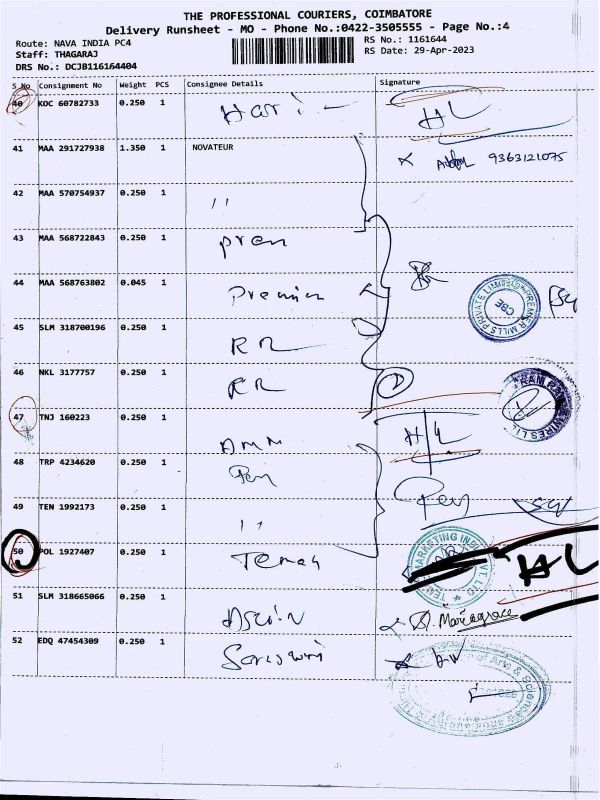 THE PROFESSIONAL COURIERS, COIMBATORE
Delivery Runsheet - MO - Phone No.:0422-3505555 - Page No.:4
Route: NAVA INDIA PC4
Staff: THAGARAJ
DRS No.: DCJB116164404
RS No.: 1161644
RS Date: 29-Apr-2023
S No Consignment No Weight PCS Consignee Details Signature
40 KOC 60782733 0.250 1 Hari HL
41 MAA 291727938 1.350 1 NOVATEUR 9363121075
42 MAA 570754937 0.250 1 ''
43 MAA 568722843 0.250 1 pren
44 MAA 568763802 0.045 1 Premier
PREMIER MILLS PRIVATE LIMITED CBE
45 SLM 318700196 0.250 1 RR
46 NKL 3177757 0.250 1 RR
47 TNJ 160223 0.250 1 AMM HL
48 TRP 4234620 0.250 1
49 TEN 1992173 0.250 1 ''
50 POL 1927407 0.250 1 HL
MARKETING
51 SLM 318665066 0.250 1
52 EDQ 47454309 0.250 1
Arts & Science